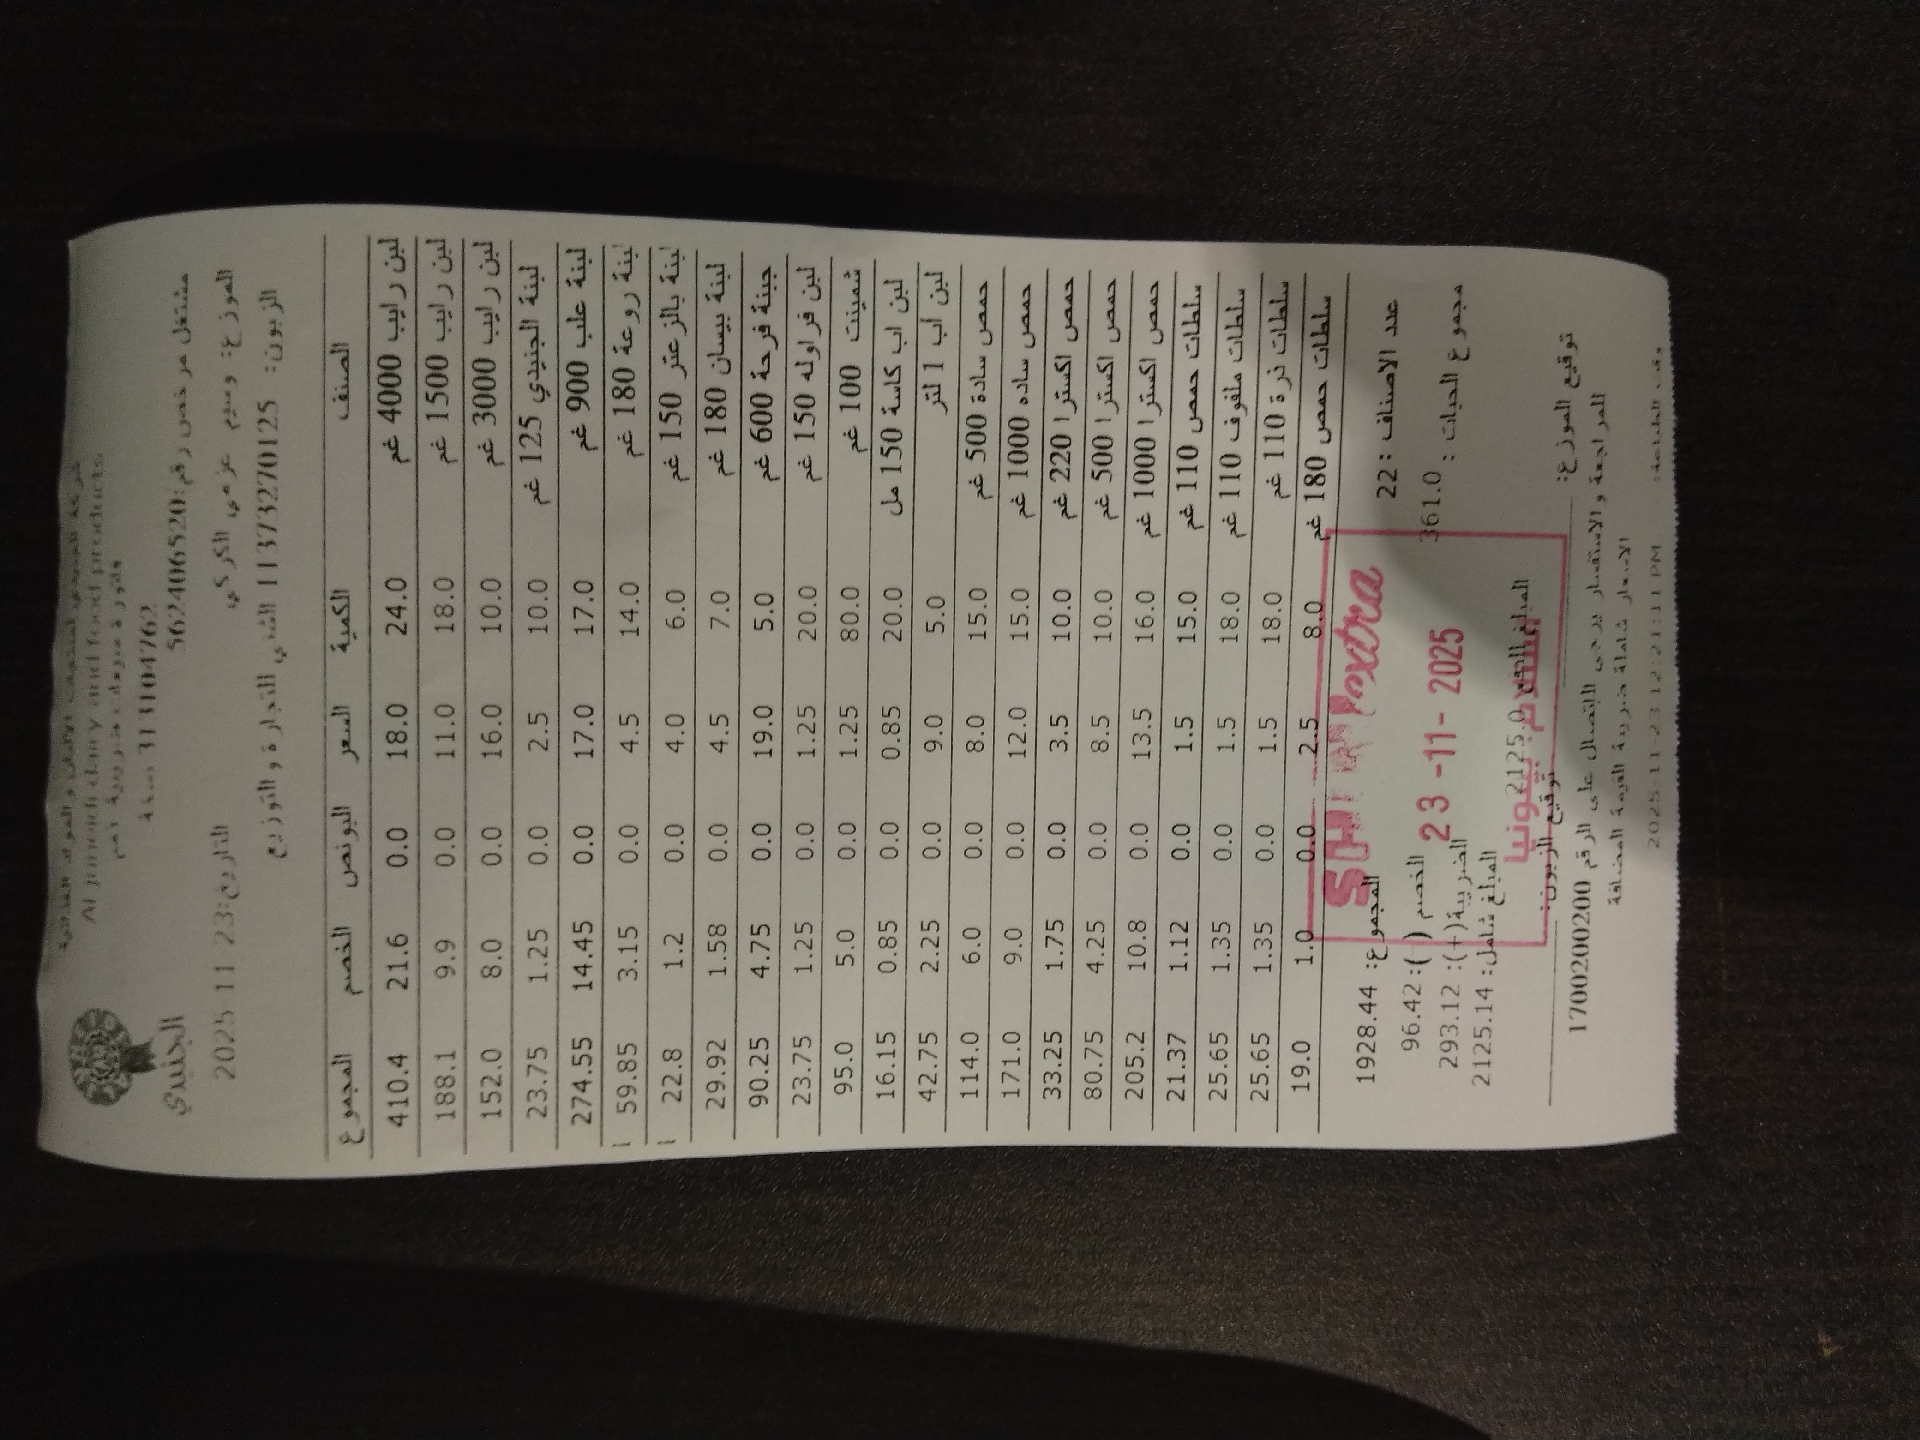 شركة الجنيدي لمنتجات الالبان و المواد الغذائية
Al juneidi dairy and food products
فاتورة مبيعات ضريبية رقم
3131104762 نسخة
مشتغل مرخص رقم: 562406520
الجنيدي
الموزع: وسيم عزمي الكركي التاريخ: 23 11 2025
الزبون: 11373270125 الفنتي التجارة والتوزيع
الصنف الكمية السعر البونص الخصم المجموع
لبن رايب 4000 غم 24.0 18.0 0.0 21.6 410.4
لبن رايب 1500 غم 18.0 11.0 0.0 9.9 188.1
لبن رايب 3000 غم 10.0 16.0 0.0 8.0 152.0
لبنة الجنيدي 125 غم 10.0 2.5 0.0 1.25 23.75
لبنة علب 900 غم 17.0 17.0 0.0 14.45 274.55
لبنة روعة 180 غم 14.0 4.5 0.0 3.15 59.85
لبنة بالزعتر 150 غم 6.0 4.0 0.0 1.2 22.8
لبنة بيسان 180 غم 7.0 4.5 0.0 1.58 29.92
جبنة فرحة 600 غم 5.0 19.0 0.0 4.75 90.25
لبن فراوله 150 غم 20.0 1.25 0.0 1.25 23.75
شمينت 100 غم 80.0 1.25 0.0 5.0 95.0
لبن اب كاسة 150 مل 20.0 0.85 0.0 0.85 16.15
لبن اب 1 لتر 5.0 9.0 0.0 2.25 42.75
حمص سادة 500 غم 15.0 8.0 0.0 6.0 114.0
حمص ساده 1000 غم 15.0 12.0 0.0 9.0 171.0
حمص اكسترا 220 غم 10.0 3.5 0.0 1.75 33.25
حمص اكسترا 500 غم 10.0 8.5 0.0 4.25 80.75
حمص اكسترا 1000 غم 16.0 13.5 0.0 10.8 205.2
سلطات حمص 110 غم 15.0 1.5 0.0 1.12 21.37
سلطات ملفوف 110 غم 18.0 1.5 0.0 1.35 25.65
سلطات ذرة 110 غم 18.0 1.5 0.0 1.35 25.65
سلطات حمص 180 غم 8.0 2.5 0.0 1.0 19.0
المجموع: 1928.44
extra
عدد الاصناف : 22
الخصم ( ): 96.42
23-11-2025
مجموع الحبات : 361.0
الضريبة(+): 293.12
المبلغ شامل: 2125.14
2125.0
توقيع الموزع: توقيع الزبون:
للمراجعة و الاستفسار يرجى الاتصال على الرقم 1700200200
الاسعار شاملة ضريبة القيمة المضافة
وقت الطباعة: 2025-11-23 12:21:11 PM